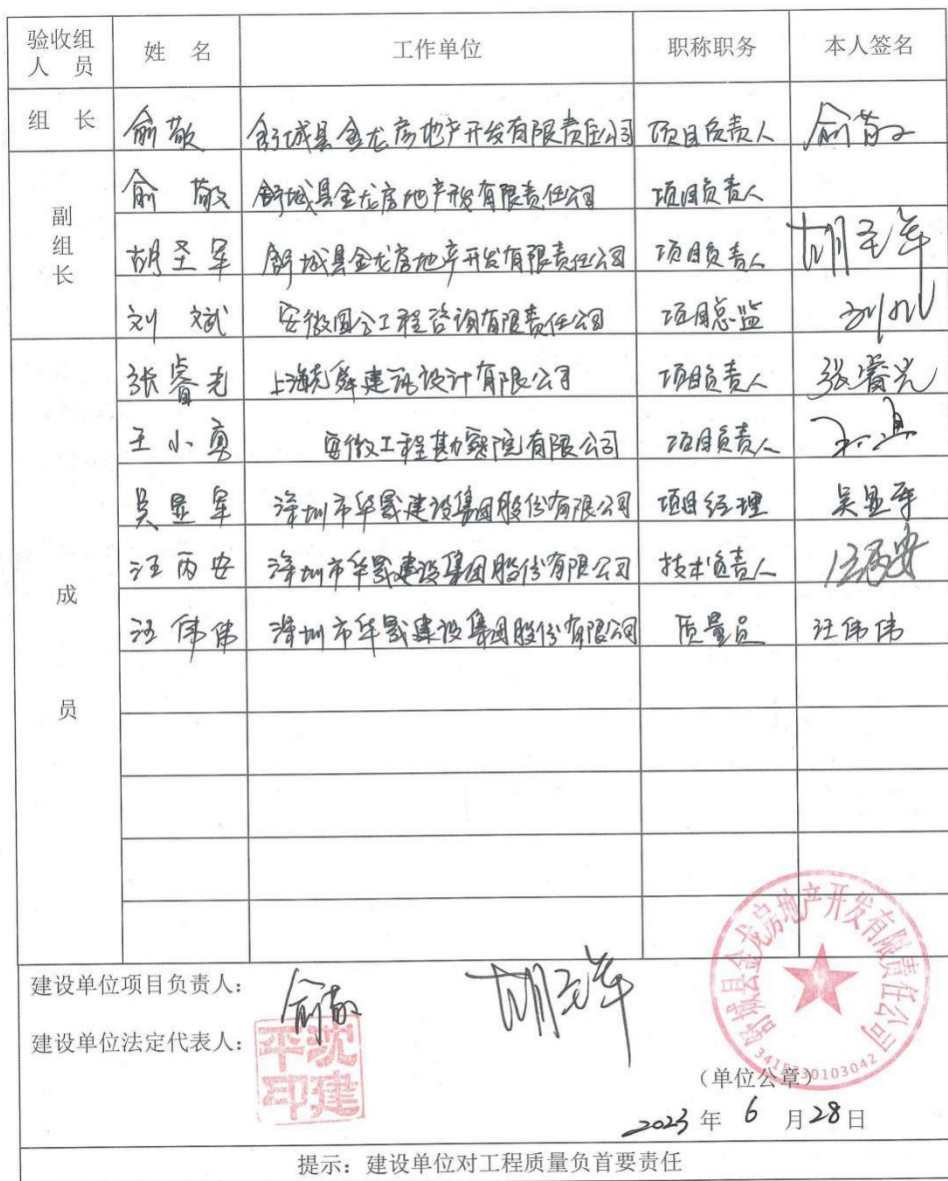 验收组人 员 姓 名 工作单位 职称职务 本人签名
组 长 俞敬 舒城县金龙房地产开发有限责任公司 项目负责人 俞敬
副组长
俞 敬 舒城县金龙房地产开发有限责任公司 项目负责人
胡圣军 舒城县金龙房地产开发有限责任公司 项目负责人 胡圣军
刘 斌 安徽国合工程咨询有限责任公司 项目总监 刘斌
成员
张睿尧 上海尧舜建筑设计有限公司 项目负责人
王小勇 安徽工程勘察院有限公司 项目负责人
吴显军 深圳市华晟建设集团股份有限公司 项目经理 吴显军
汪丙安 深圳市华晟建设集团股份有限公司 技术负责人 汪丙安
汪伟伟 深圳市华晟建设集团股份有限公司 质量员 汪伟伟
建设单位项目负责人: 俞敬 胡圣军
建设单位法定代表人: 沈建平印
舒城县金龙房地产开发有限责任公司
(单位公章)
2023 年 6 月 28 日
提示:建设单位对工程质量负首要责任